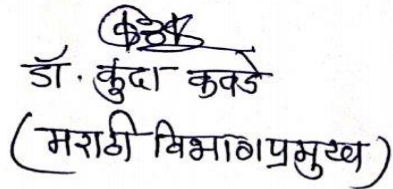 डॉ. कुंदा कवडे
(मराठी विभागप्रमुख)